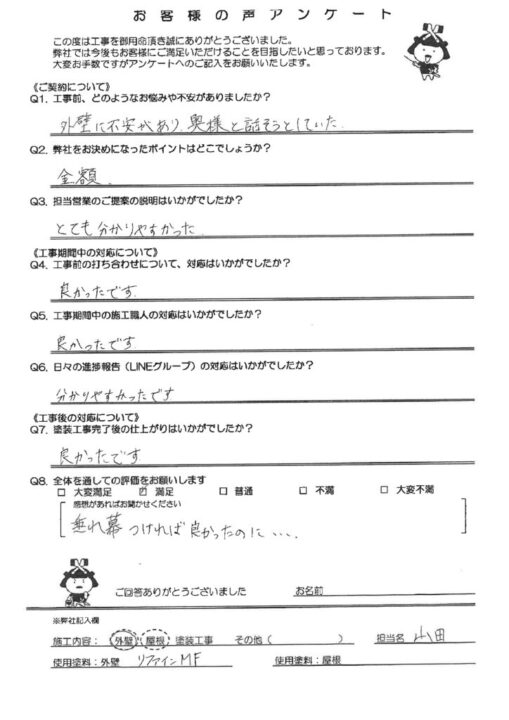 お客様の声アンケート
この度は工事を御用命頂き誠にありがとうございました。
弊社では今後もお客様にご満足いただけることを目指したいと思っております。
大変お手数ですがアンケートへのご記入をお願いいたします。
《ご契約について》
Q1. 工事前、どのようなお悩みや不安がありましたか?
外壁に不安があり、奥様と話そうとしていた
Q2. 弊社をお決めになったポイントはどこでしょうか?
金額
Q3. 担当営業のご提案の説明はいかがでしたか?
とても分かりやすかった
《工事期間中の対応について》
Q4. 工事前の打ち合わせについて、対応はいかがでしたか?
良かったです
Q5. 工事期間中の施工職人の対応はいかがでしたか?
良かったです
Q6. 日々の進捗報告(LINEグループ)の対応はいかがでしたか?
分かりやすかったです
《工事後の対応について》
Q7. 塗装工事完了後の仕上がりはいかがでしたか?
良かったです
Q8. 全体を通しての評価をお願いします
□ 大変満足 ☑ 満足 □ 普通 □ 不満 □ 大変不満
感想があればお聞かせください
垂れ幕つければ良かったのに・・・。
ご回答ありがとうございました お名前
※弊社記入欄
施工内容: 外壁・屋根 塗装工事 その他( ) 担当名 山田
使用塗料:外壁 リファインMF 使用塗料:屋根